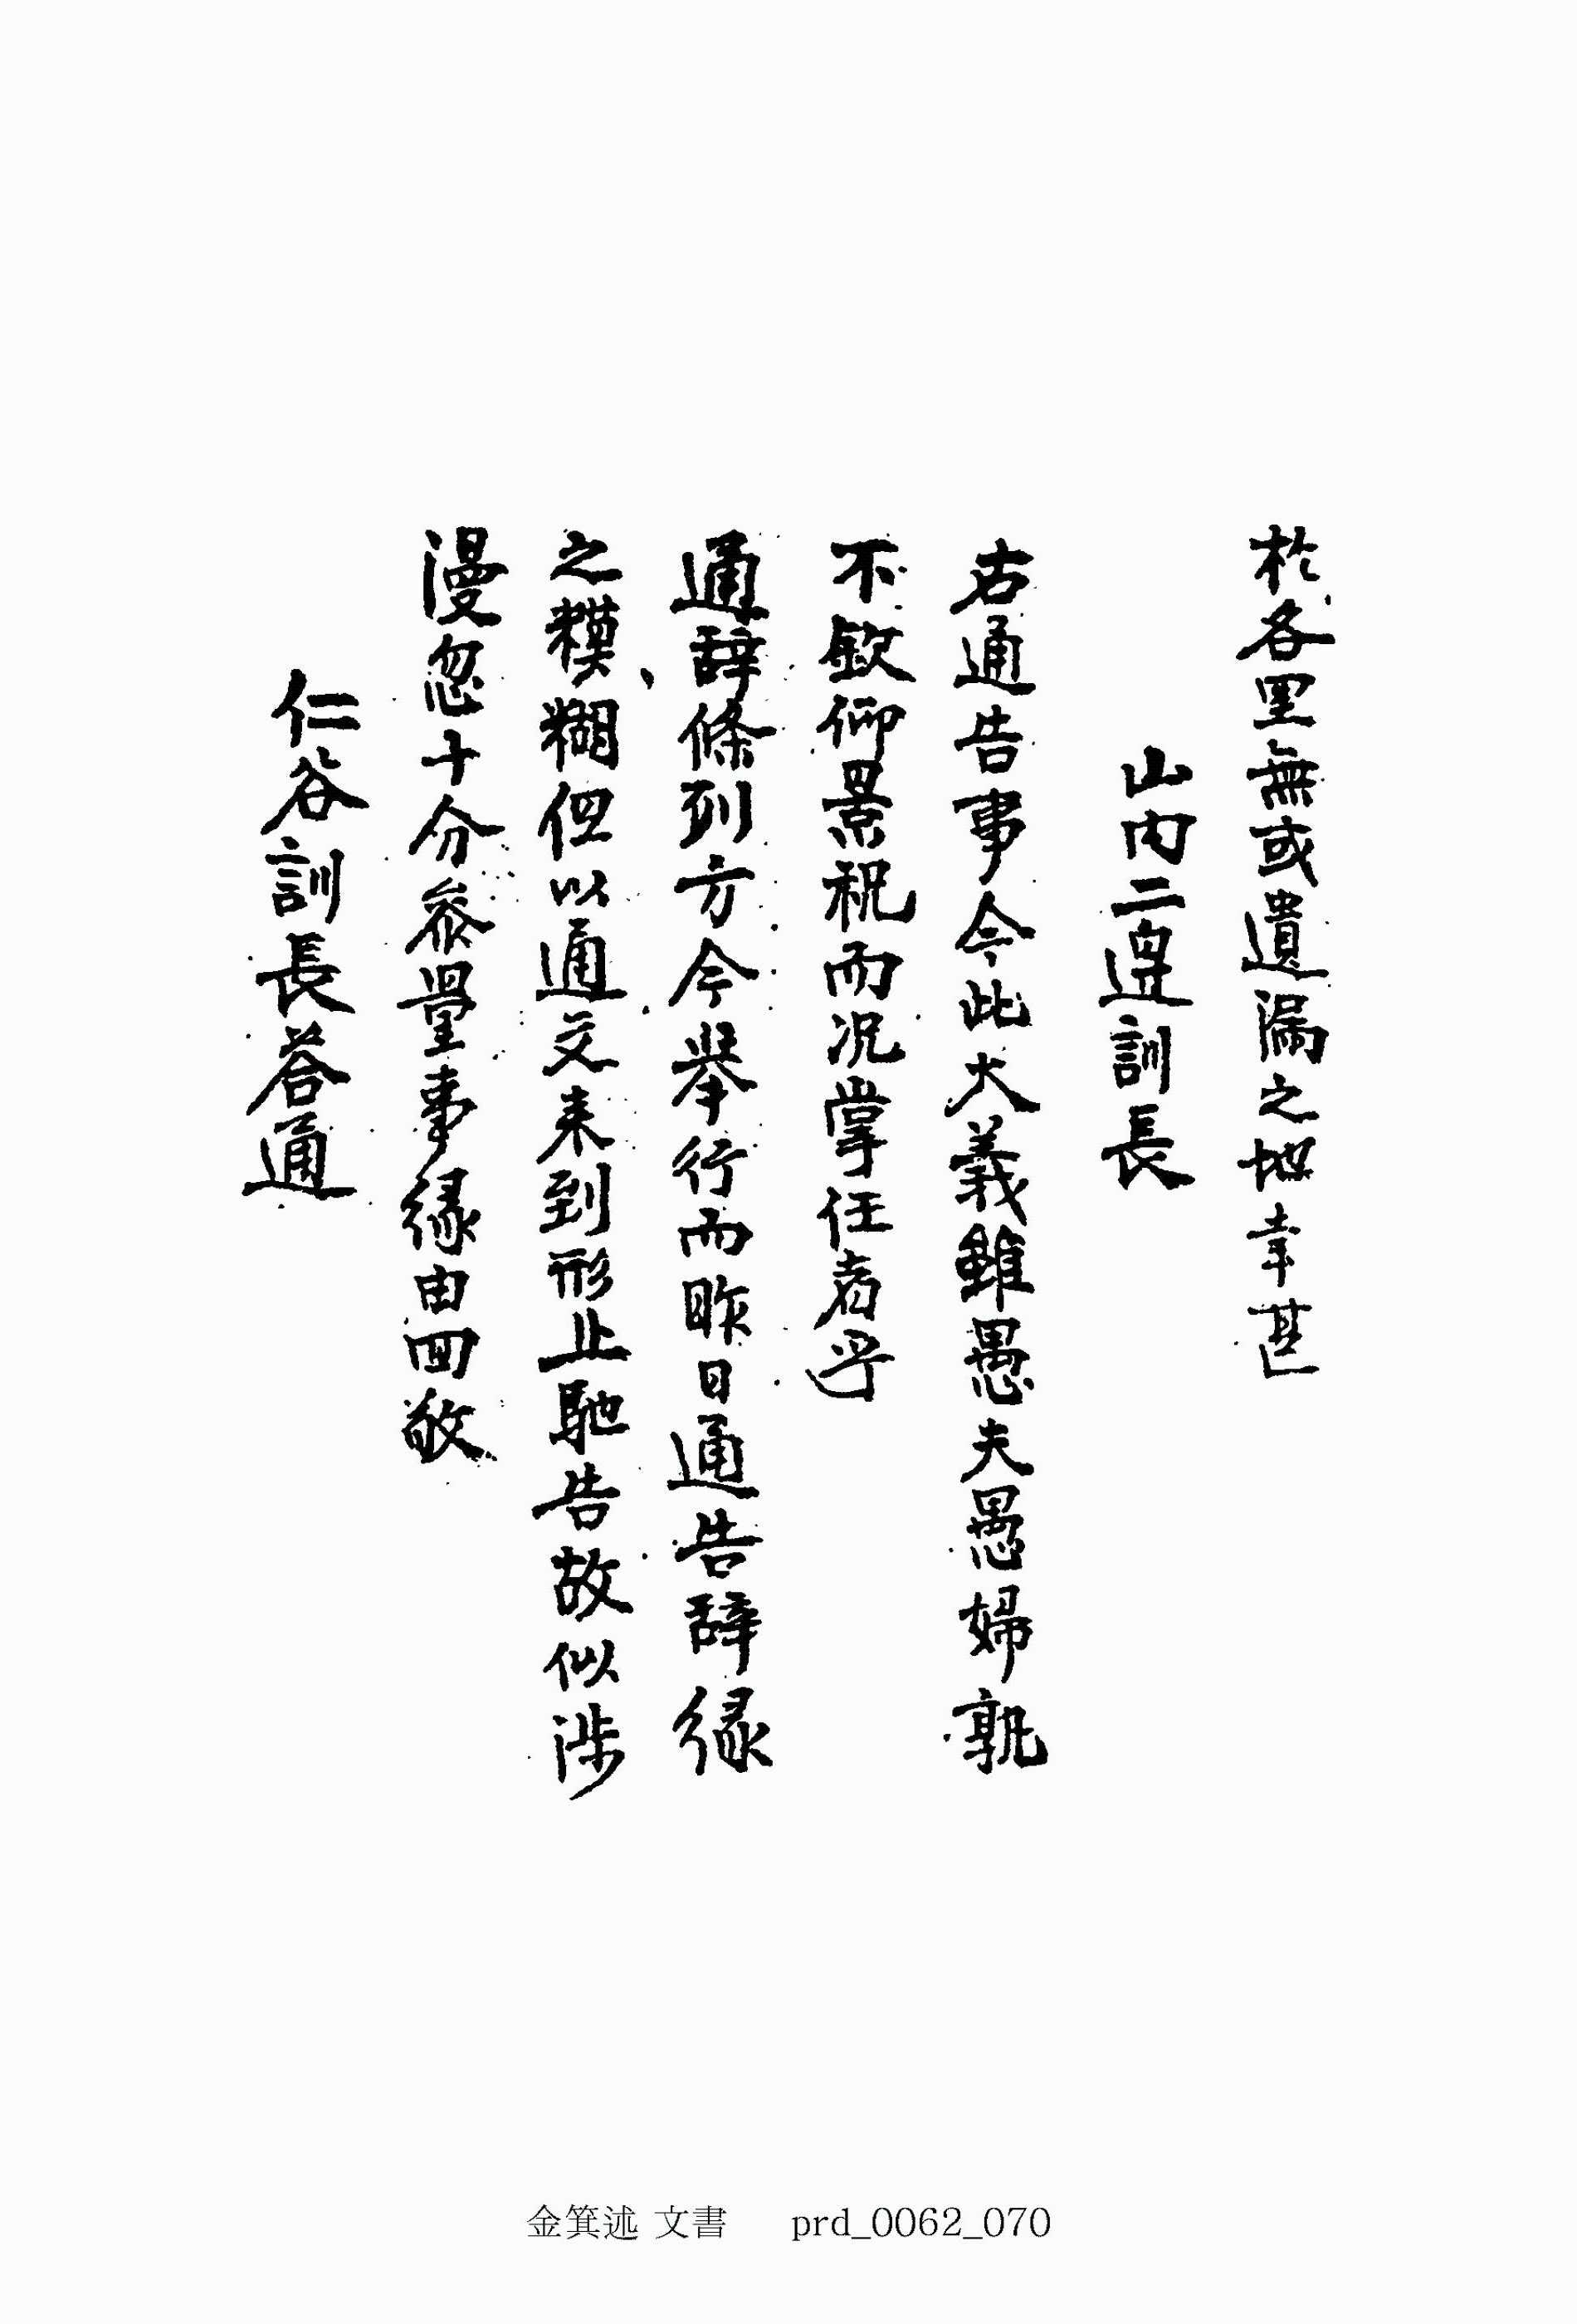 於各里無或遺漏之地幸甚
山內二遑訓長
右通告事今此大義雖愚夫愚婦孰
不欽仰景祝而况掌任者乎
通辭條列方今擧行而昨日通告辭緣
之糢糊但以通文来到形止馳告故似涉
漫忽十分叅量事緣由回敬
仁谷訓長荅通
金箕述 文書 prd_0062_070